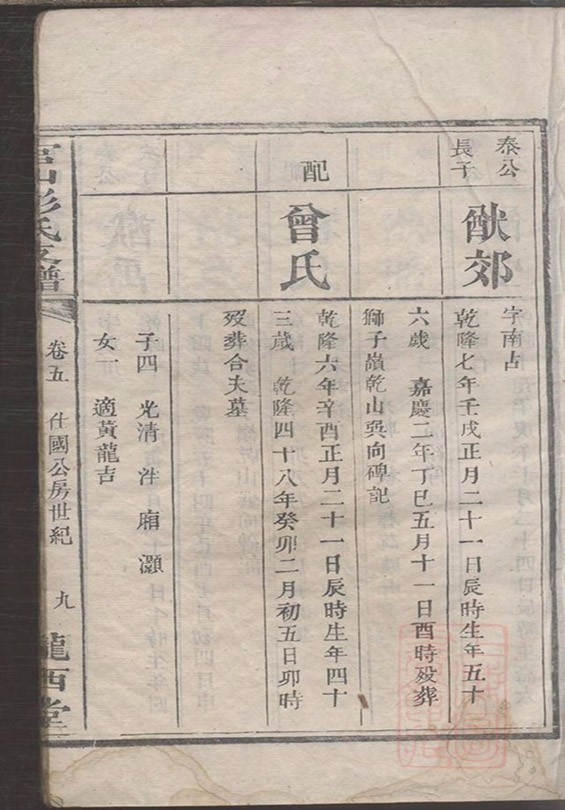 泰公
長子
猷郊
字南占
乾隆七年壬戌正月二十一日辰時生年五十
六歲 嘉慶二年丁巳五月十一日酉時殁葬
獅子嶺乾山巽向碑記
配
曾氏
乾隆六年辛酉正月二十一日辰時生年四十
三歲 乾隆四十八年癸卯二月初五日卯時
殁葬合夫墓
子四 光清 泮 廂 灝
女一 適黃龍吉
彭氏支譜
卷五 仕國公房世紀 九
隴西堂